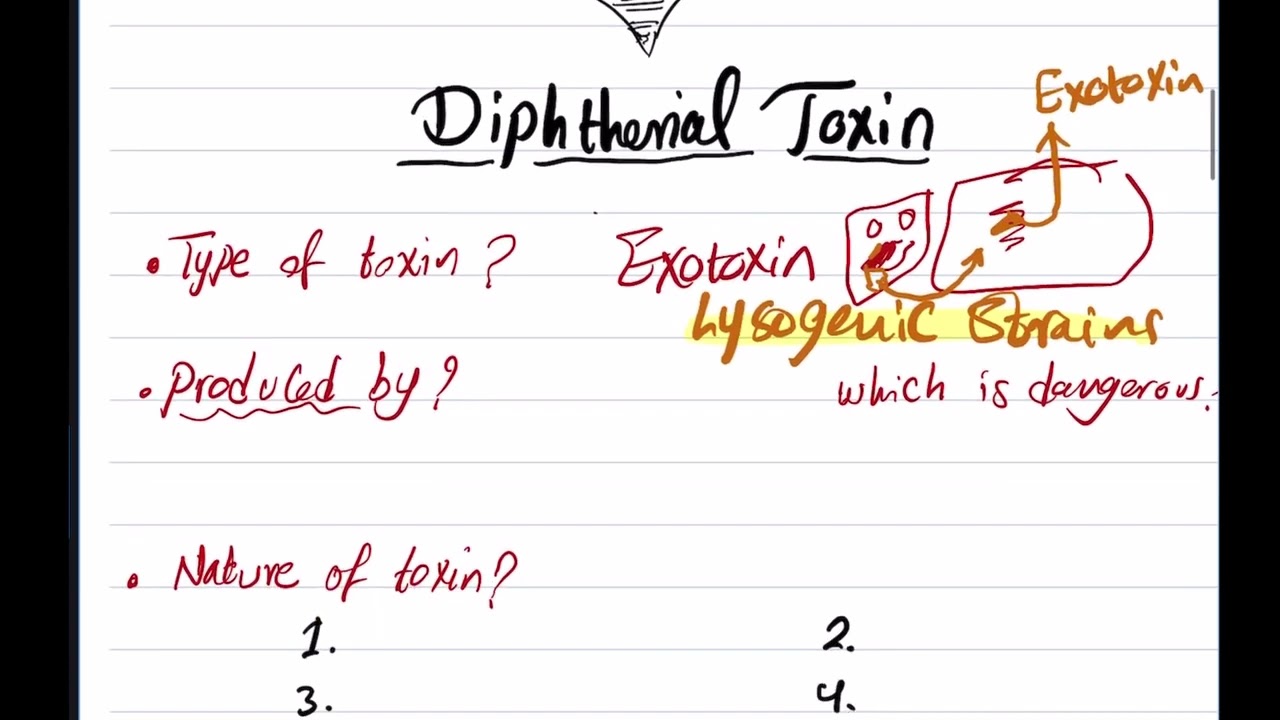 Exotoxin
Diphtherial Toxin
• Type of toxin? Exotoxin
Lysogenic Strains
• Produced by? which is dangerous.
• Nature of toxin?
1. 2.
3. 4.